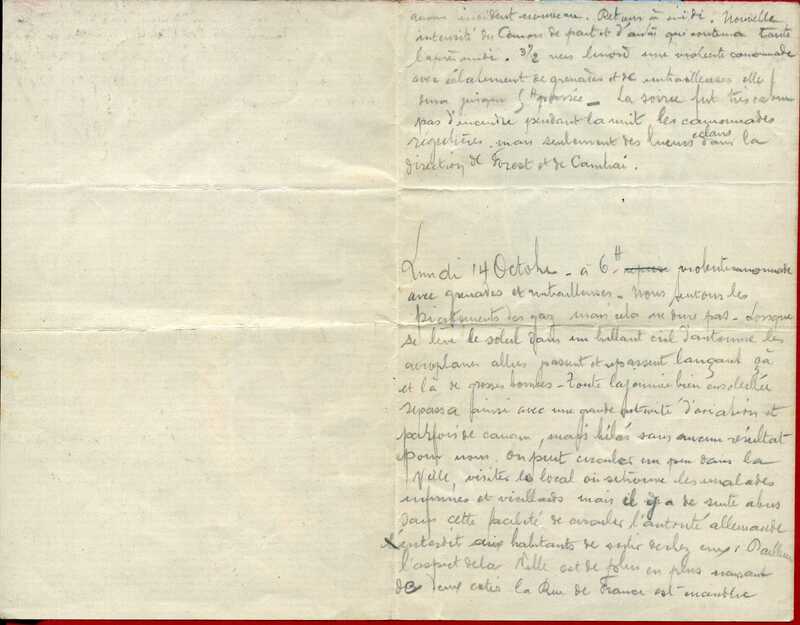 aucun incident nouveau. Retour à midi. Nouvelle
intensité du Canon de part et d'autre qui continua toute
l'après midi. 3½ vers une violente canonnade
avec éclatement de grenades et de mitrailleuses elle
dura jusque 5H passée_ La soirée fut très calme
pas d'incendie pendant la nuit les canonnades
régulières. mais seulement des lueurs éclairs dans la
direction de Forest et de Cambrai.
Lundi 14 Octobre_ à 6H violente canonnade
avec grenades et mitrailleuses_ Nous sentons les
picotements des gaz mais cela ne dure pas_ Lorsque
se lève le soleil dans un brillant ciel d'automne les
aéroplanes alliés passent et repassent lançant çà
et là de grosses bombes_ toute la journée bien ensoleillée
se passa ainsi avec une grande activité d'aviation et
parfois de canon, mais hélas sans aucun résultat
pour nous. On peut circuler un peu dans la
Ville, visiter le local où se trouve les malades
infirmes et vieillards mais il y a de suite abus
dans cette facilité de circuler l'autorité allemande
interdit aux habitants de sortir de chez eux; D'ailleurs
l'aspect de la Ville est de plus en plus navrant
de deux cotés la Rue de France est